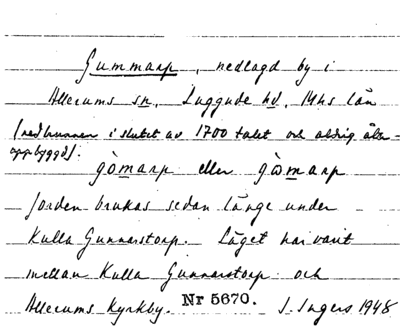 Gummarp, nedlagd by i
Allerums sn, Luggude hd, Mhs län
(nedbrunnen i slutet av 1700 talet och aldrig åter-
uppbyggd):
gòmarp eller gòmarp
Jorden brukas sedan länge under
Kulla Gunnarstorp. Läget har varit
mellan Kulla Gunnarstorp och
Allerums Kyrkby. Nr 5670. I. Ingers 1948